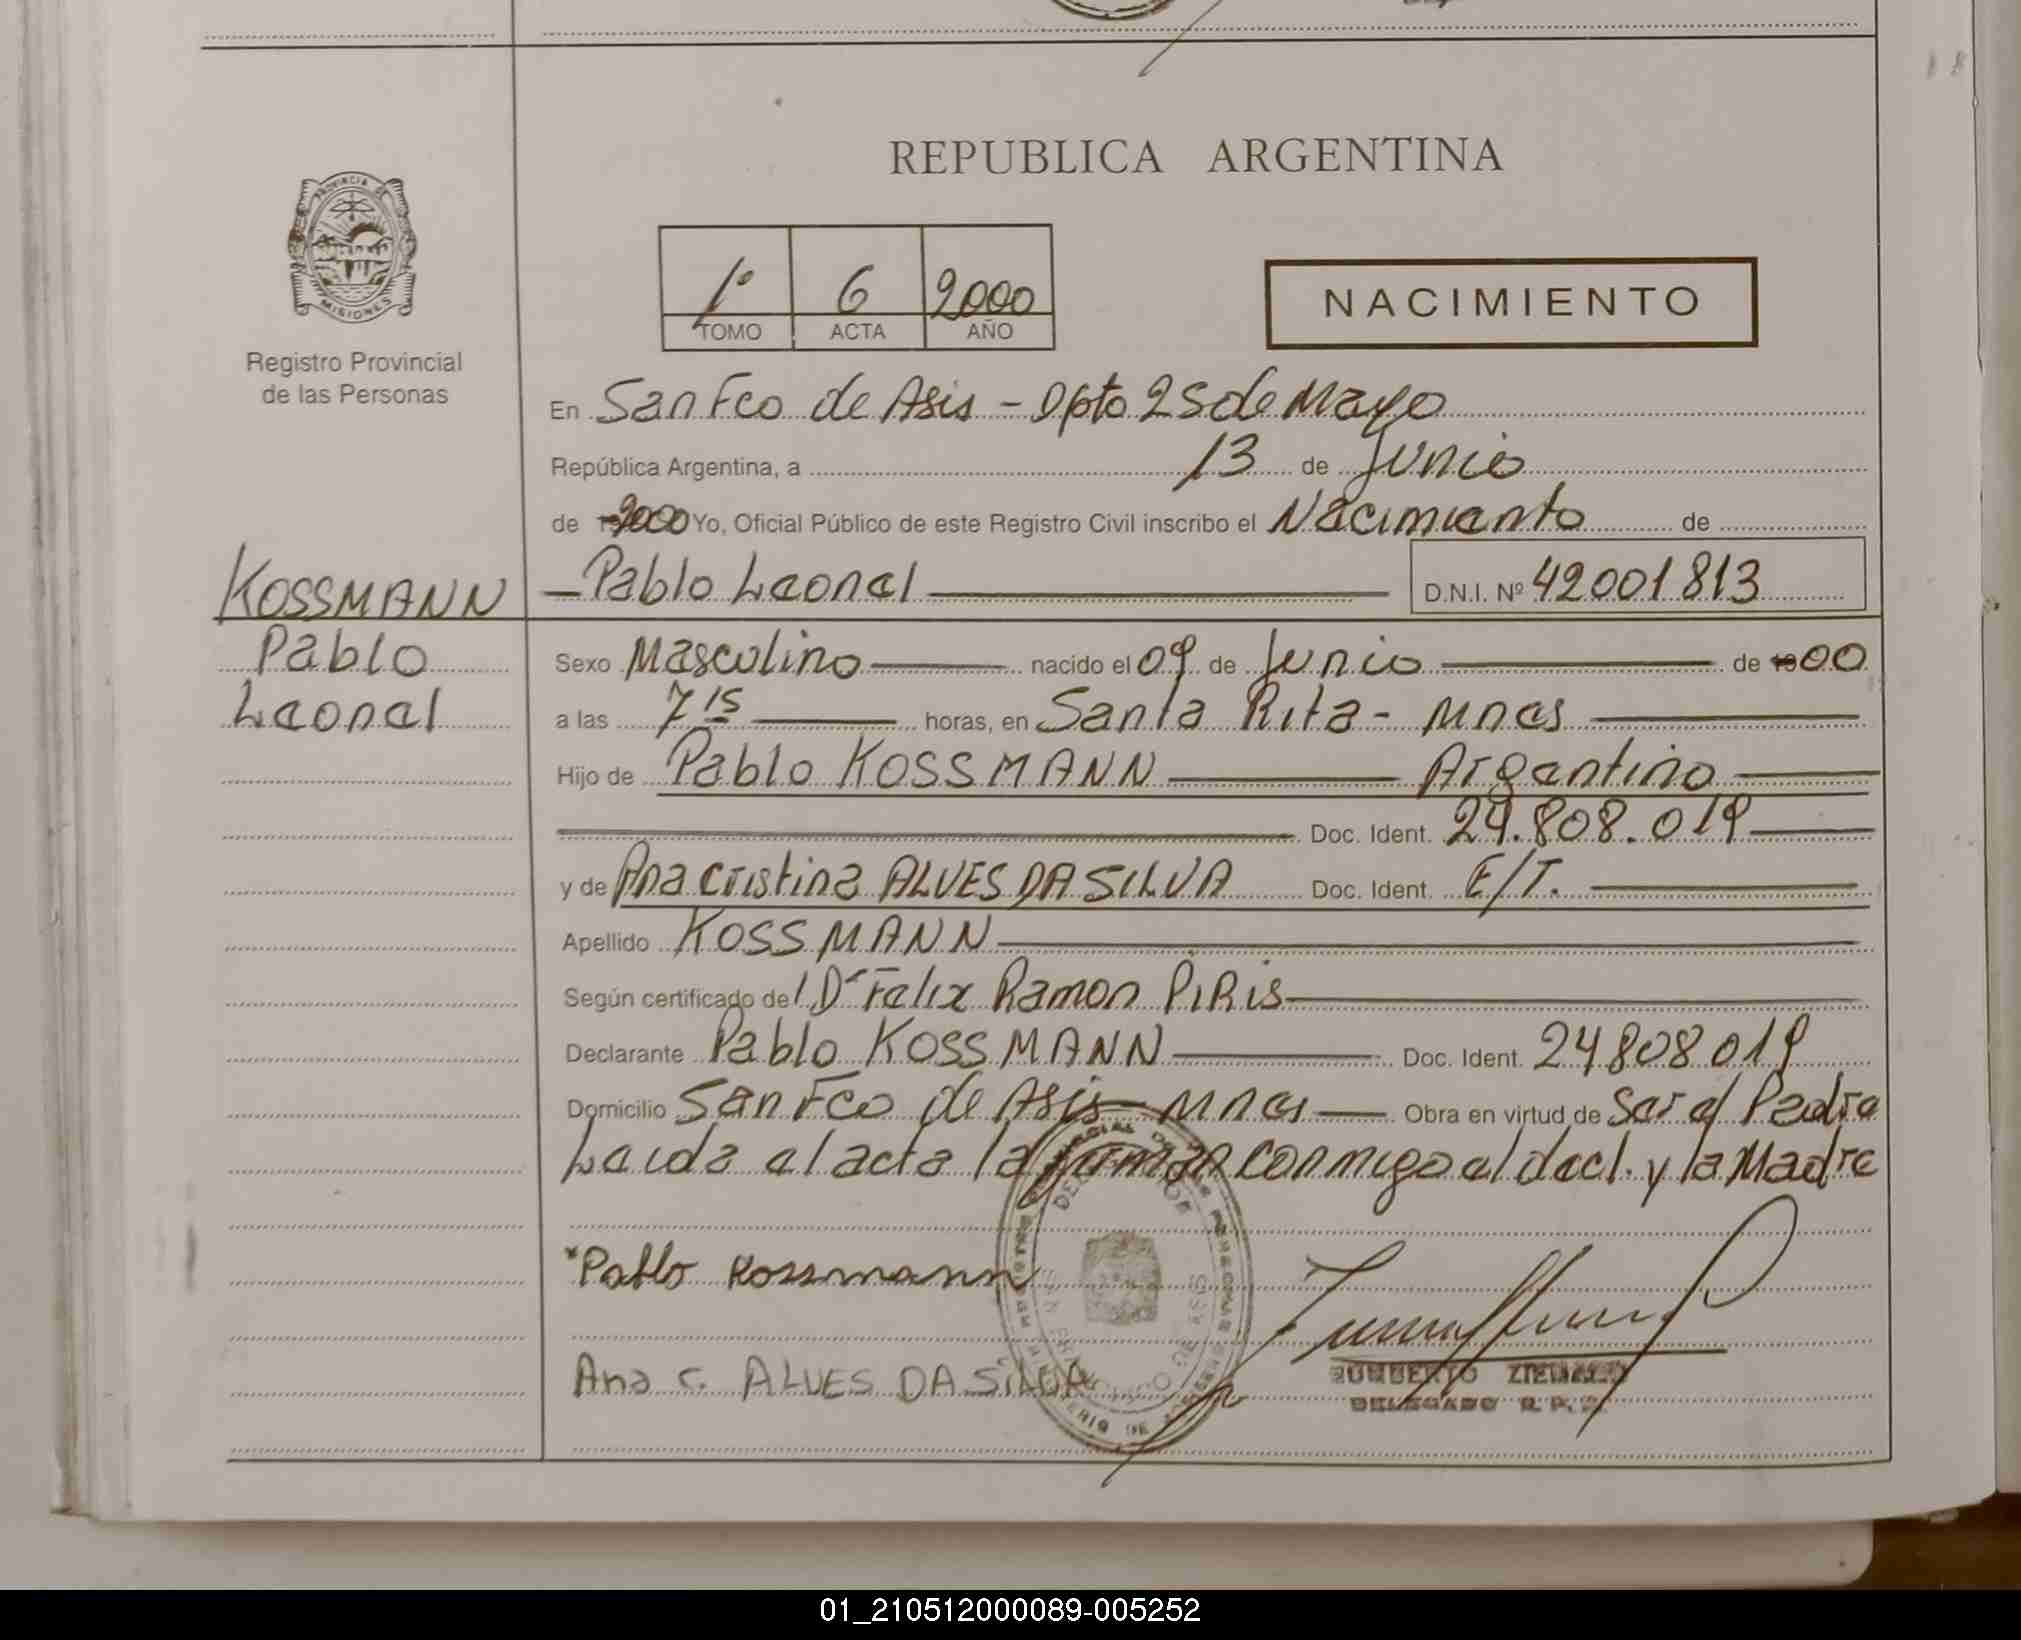 REPUBLICA ARGENTINA
PROVINCIA DE
MISIONES
Registro Provincial
de las Personas
1º 6 2000
TOMO ACTA AÑO
NACIMIENTO
En San Fco de Asis - Dpto 25 de Mayo
República Argentina, a 13 de Junio
de 2000 Yo, Oficial Público de este Registro Civil inscribo el Nacimiento de
KOSSMANN
Pablo
Leonel
Pablo Leonel D.N.I. Nº 42001813
Sexo Masculino nacido el 09 de Junio de 00
a las 7 15 horas, en Santa Rita - Mnes
Hijo de Pablo KOSSMANN Argentino
Doc. Ident. 24.808.019
y de Ana Cristina ALVES DA SILVA Doc. Ident. E/T.
Apellido KOSSMANN
Según certificado del Dr Felix Ramon PIRIS
Declarante Pablo KOSSMANN Doc. Ident. 24808019
Domicilio San Fco de Asis - Mnes Obra en virtud de Ser el Padre
Leida el acta la firman conmigo el decl. y la Madre
*Pablo Kossmann
Ana C. ALVES DA SILVA
DELEGADO R.P.
01_210512000089-005252